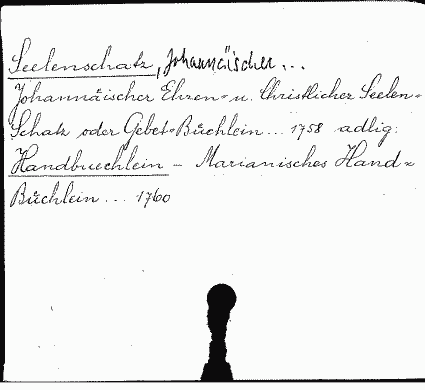 Seelenschatz, Johannäischer...
Johannäischer Ehren= u. Christlicher Seelen=
Schatz oder Gebet=Büchlein... 1758 adlig:
Handbuechlein – Marianisches Hand=
Büchlein... 1760